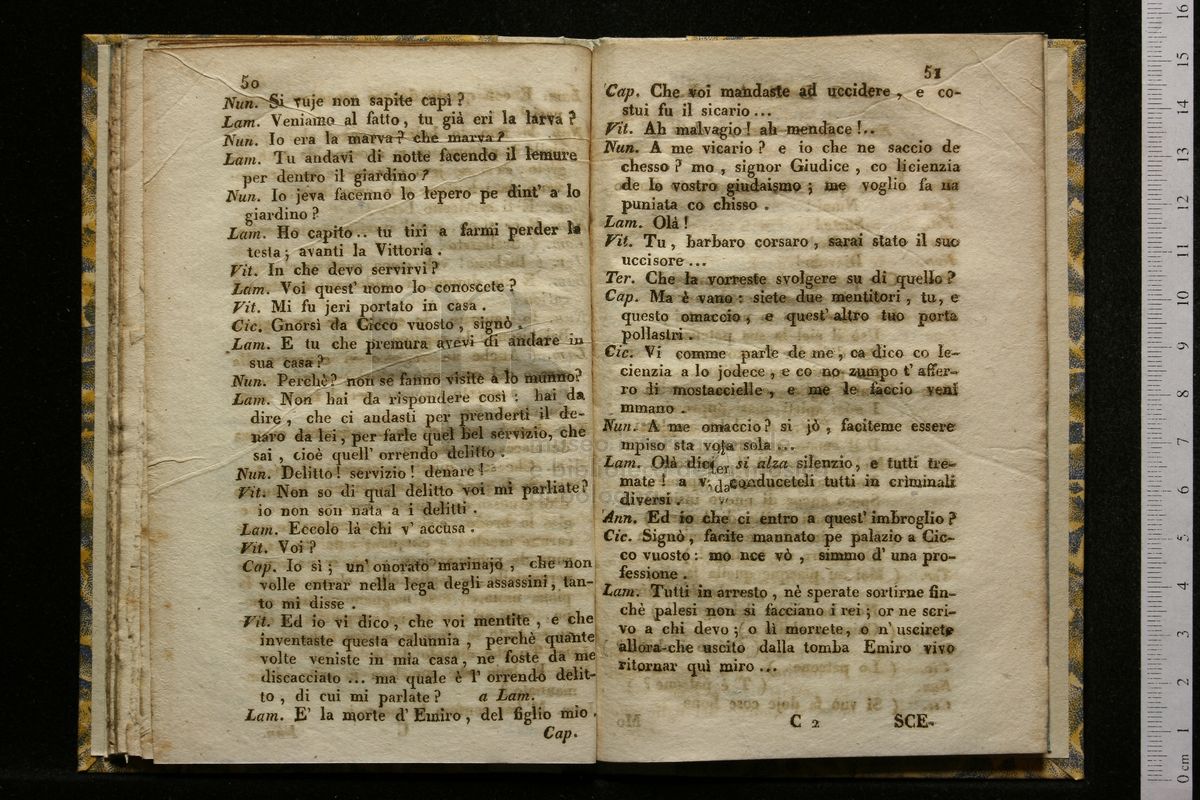 50
Nun. Si vuje non sapite capì ?
Lam. Veniamo al fatto, tu già eri la larva ?
Nun. Io era la marva? che marva?
Lam. Tu andavi di notte facendo il lemure
per dentro il giardino ?
Nun. Io jeva facenno lo lepero pe dint' a lo
giardino ?
Lam. Ho capito.. tu tiri a farmi perder la
testa ; avanti la Vittoria .
Vit. In che devo servirvi ?
Lam. Voi quest' uomo lo conoscete ?
Vit. Mi fu jeri portato in casa .
Cic. Gnorsì da Cicco vuosto , signò .
Lam. E tu che premura avevi di andare in
sua casa ?
Nun. Perchè? non se fanno visite a lo munno?
Lam. Non hai da rispondere così : hai da
dire , che ci andasti per prenderti il de-
naro da lei , per farle quel bel servizio, che
sai , cioè quell' orrendo delitto .
Nun. Delitto ! servizio ! denare !
Vit. Non so di qual delitto voi mi parliate?
io non son nata a i delitti .
Lam. Eccolo là chi v' accusa .
Vit. Voi ?
Cap. Io sì ; un' onorato marinajo , che non
volle entrar nella lega degli assassini, tan-
to mi disse .
Vit. Ed io vi dico , che voi mentite , e che
inventaste questa calunnia , perchè quante
volte veniste in mia casa , ne foste da me
discacciato ... ma quale è l' orrendo delit-
to , di cui mi parlate ? a Lam.
Lam. E' la morte d' Emiro , del figlio mio .
Cap.
51
Cap. Che voi mandaste ad uccidere , e co-
stui fu il sicario ...
Vit. Ah malvagio ! ah mendace !..
Nun. A me vicario ? e io che ne saccio de
chesso ? mo , signor Giudice , co licienzia
de lo vostro giudaismo ; me voglio fa na
puniata co chisso .
Lam. Olà !
Vit. Tu , barbaro corsaro , sarai stato il suo
uccisore ...
Ter. Che la vorreste svolgere su di quello ?
Cap. Ma è vano : siete due mentitori , tu, e
questo omaccio , e quest' altro tuo porta
pollastri .
Cic. Vi comme parle de me , ca dico co le-
cienzia a lo jodece , e co no zumpo t' affer-
ro li mostaccielle , e me le faccio venì
mmano .
Nun. A me omaccio ? si jò , faciteme essere
mpiso sta vota sola ...
Lam. Olà si alza silenzio, e tutti tre-
mate ! a conduceteli tutti in criminali
diversi .
Ann. Ed io che ci entro a quest' imbroglio ?
Cic. Signò , facite mannato pe palazio a Cic-
co vuosto : mo nce vò , simmo d' una pro-
fessione .
Lam. Tutti in arresto , nè sperate sortirne fin-
chè palesi non si facciano i rei ; or ne scri-
vo a chi devo ; o lì morrete, o n' uscirete
allora che uscito dalla tomba Emiro vivo
ritornar quì miro ...
C 2 SCE-